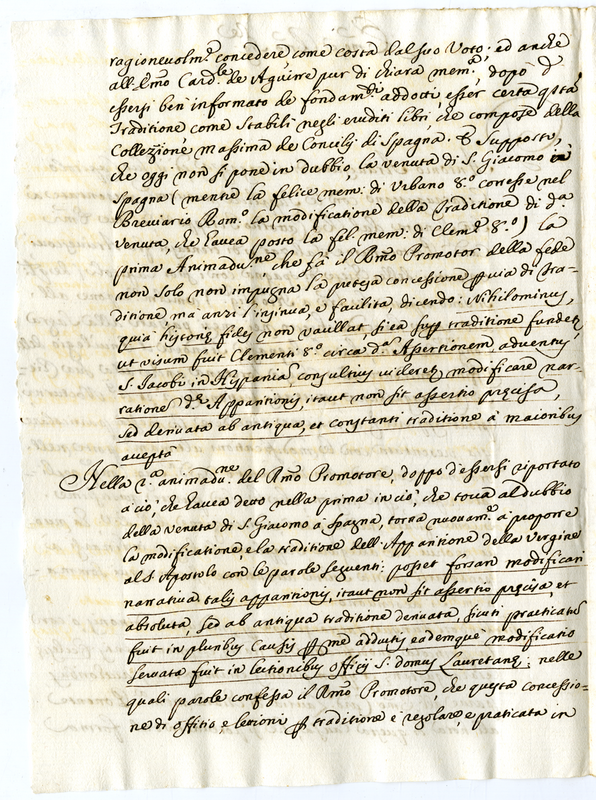 ragionevolm.e concedere come costa dal suo Voto; ed anche
all Emo Card.le de Aguirre pur di chiara mem.a, dopò d'
essersi ben informato de fondam.ti addotti, esser certa q.sta
Traditione come stabilì negli eruditi libri, che compose della
Collezione massima de Concilij di Spagna. E supposto,
che oggi non si pone in dubbio, la venuta di S. Giacomo in
Spagna (mentre la felice mem: di Urbano 8.o corresse nel
Breviario Rom.o la modificatione della Traditione di d.a
venuta, che havea posto la fel. mem: di Clem.e 8.o) la
prima Animadu.ne che fà il Rmo Promotor della fede
non solo non impugna la pretesa concessione p via di tra-
ditione ma anzi l'insinua, e facilita, dicendo: Nihilominus,
quia historię fides non vacillat, si ea sup traditione fundetr,
ut visum fuit Clementi 8.o circa d.am Assertionem adventus
S. Jacobi in Hyspania, consultius videretr modificare nar-
rationẽ d.ę Apparitionis, itaut non sit assertio pręcisa,
sed derivata ab antiqua, et constanti traditione à maioribus
accepta
Nella 2.a animadu.ne del Rmo Promotore, doppo d'essersi riportato
à ciò, che havea detto nella prima in ciò, che toca al dubbio
della venuta di S. Giacomo à Spagna, torna nuovam.e à proporre
la modificatione e la traditione dell'Apparitione della Vergine
al S. Apostolo con le parole seguenti: posset forsan modificari
narrativa talis apparitionis, itaut non sit assertio pręcisa, et
absoluta, sed ab antiqua traditione derivata, sicuti practicatũ
fuit in pluribus Causis p me adductis eademque modificatio
servata fuit in lectionibus officij S. domus Lauretanę: nelle
quali parole confessa il Rmo Promotore che questa concessio-
ne di offitio, e lezioni p traditione è regolare e praticata in